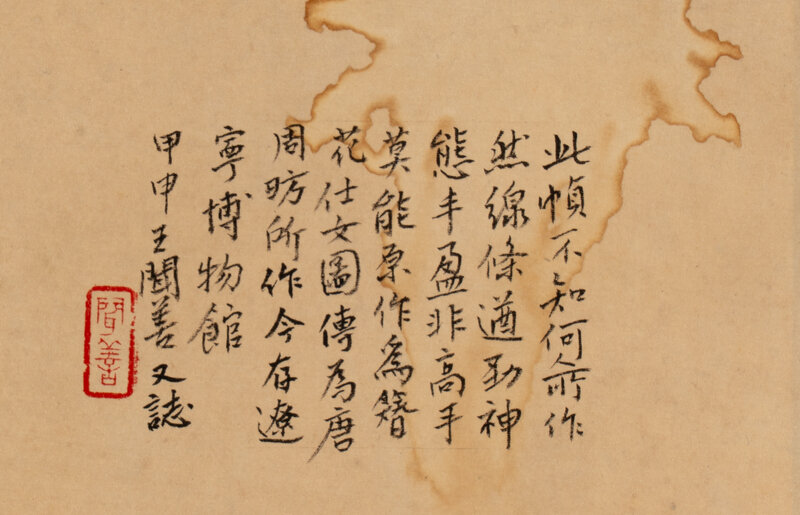 此幀不知何人所作
然線條遒勁神
態丰盈非高手
莫能原作為簪
花仕女圖傳為唐
周昉所作今存遼
寧博物館
甲申王聞善又誌
聞善